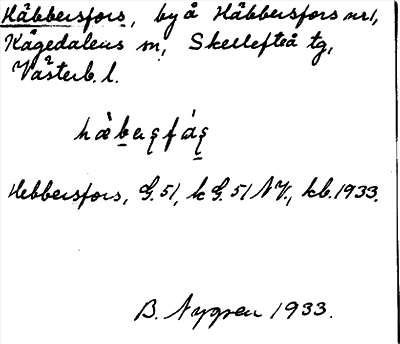 Häbbersfors, by å Häbbersfors nr 1,
Kågedalens sn, Skellefteå tg,
Västerb. l.
Hebbersfors, G. 51, k G. 51 NV., kb. 1933.
B. Nygren 1933.